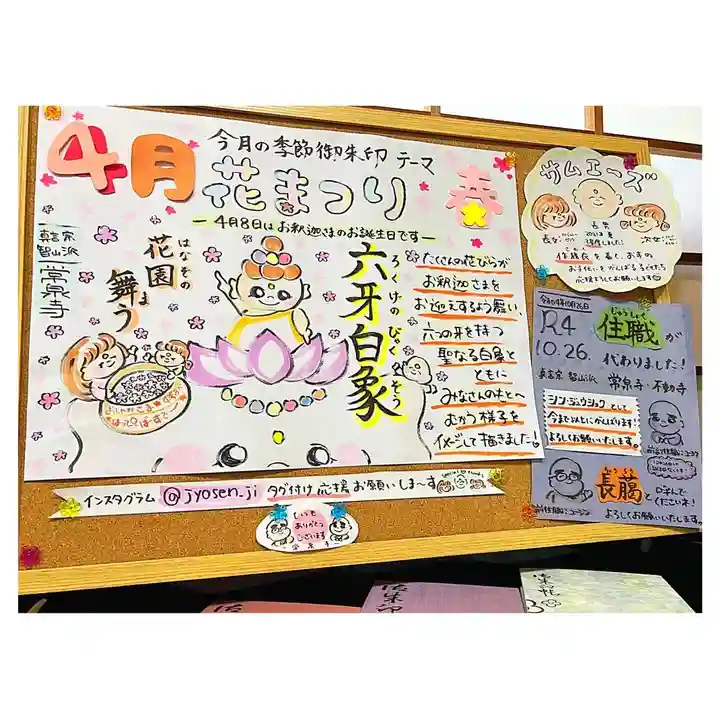 4月
今月の季節御朱印 テーマ
花まつり
春
― 4月8日は お釈迦さまのお誕生日です ―
真言宗
智山派
常泉寺
はなぞの
花園
ま
舞う
ろくげの びゃくぞう
六牙白象
たくさんの花びらが
お釈迦さまを
お迎えするよう舞い、
六つの牙を持つ
聖なる白象と
ともに
みなさんのもとへ
むかう様子を
イメージして描きました!
おしゃかさま
はっぴばーすでー
インスタグラム @jyosen_ji タグ付け 応援 お願いしま～す
いつも
ありがとう
ございます
常泉寺
サムエーズ
長女
長男
次女
作務衣を着てお寺の
お手伝いをがんばる子供たち
応援よろしくお願いします
令和4年10月26日
R4
10.26.
じゅうしょく
住職が
代わりました!
真言宗 智山派 常泉寺・不動寺
シン・ジュウショクとして
今まで以上にがんばります!
よろしくお願いいたします。
長臈と
呼んで
ください!
よろしくお願いいたします。
御朱印